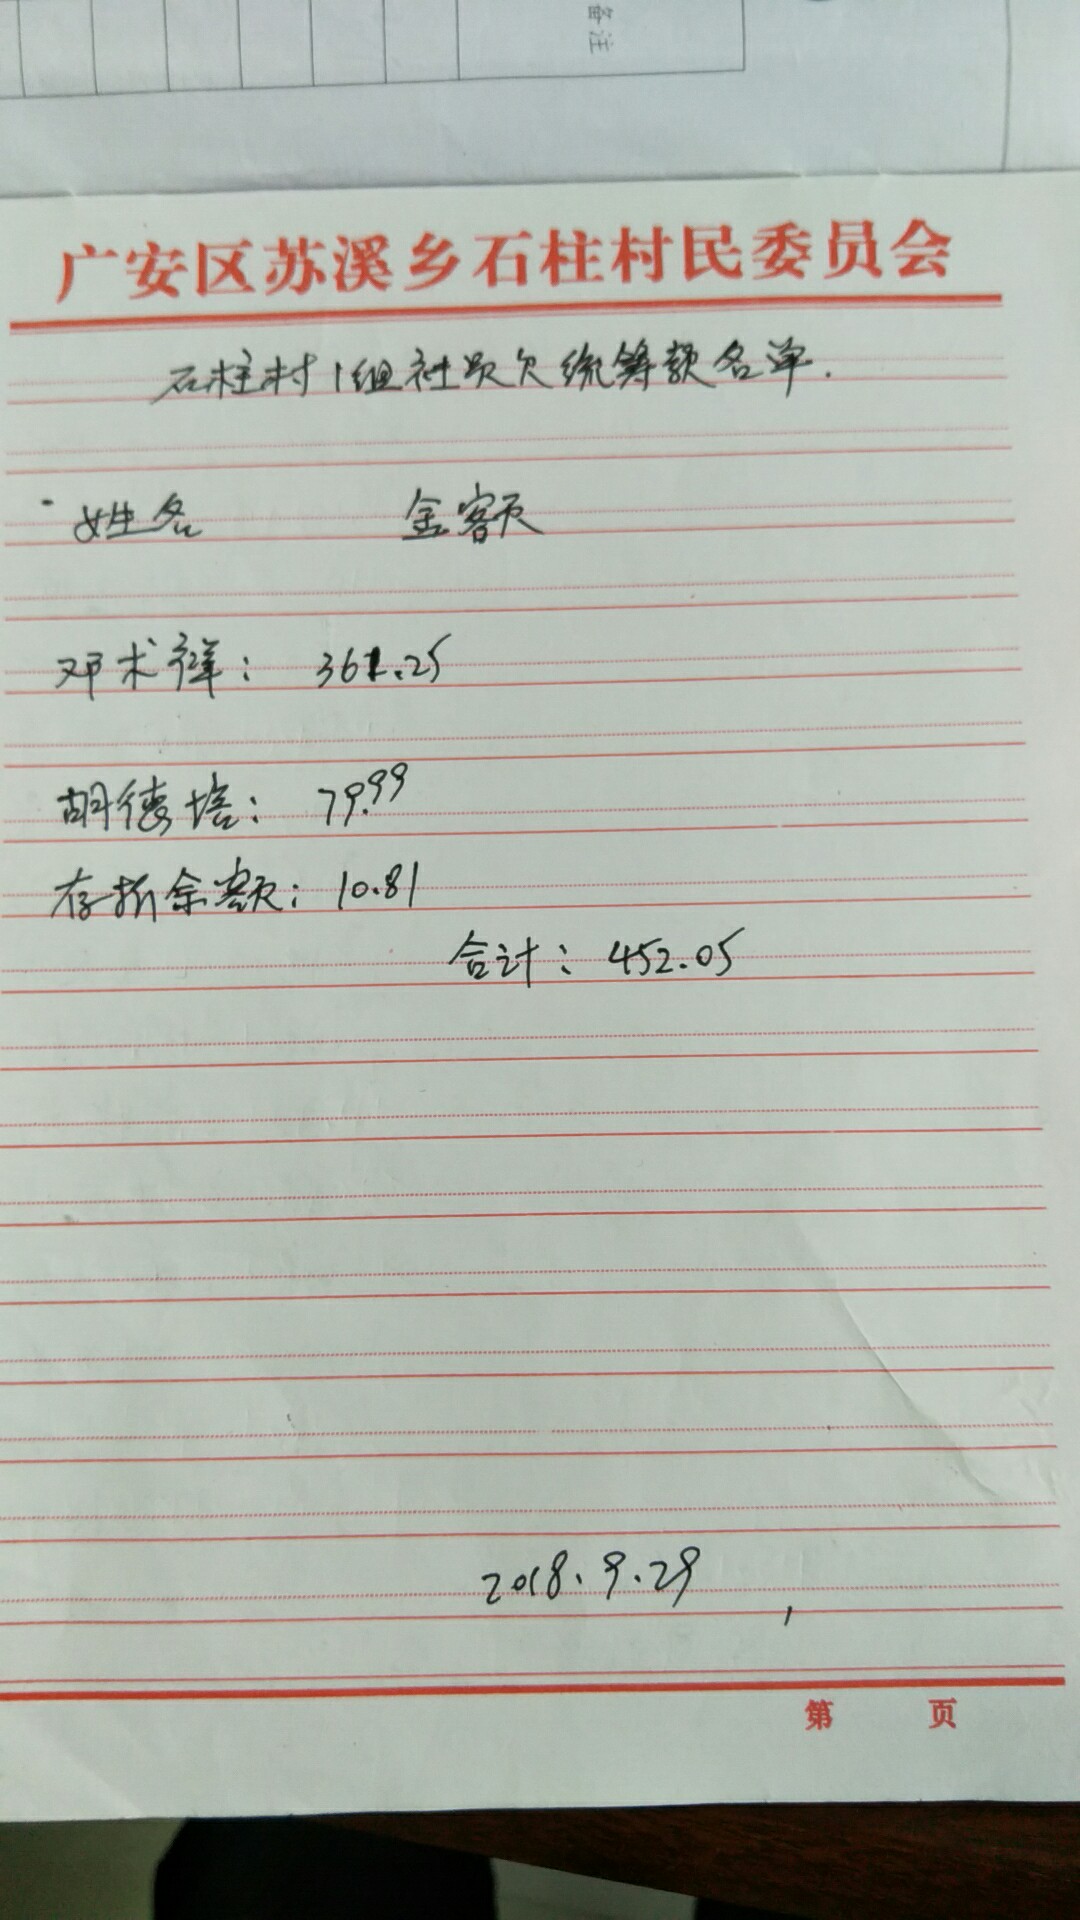 备注
广安区苏溪乡石柱村民委员会
石柱村1组社员欠统筹款名单.
姓名 金额
邓术祥: 361.25
胡德培: 79.99
存折余额: 10.81
合计: 452.05
2018.9.29
第 页